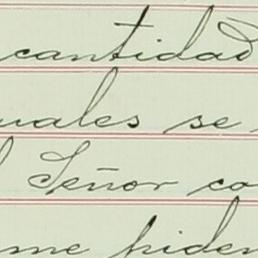 cantidad
uales se
Señor co
me piden